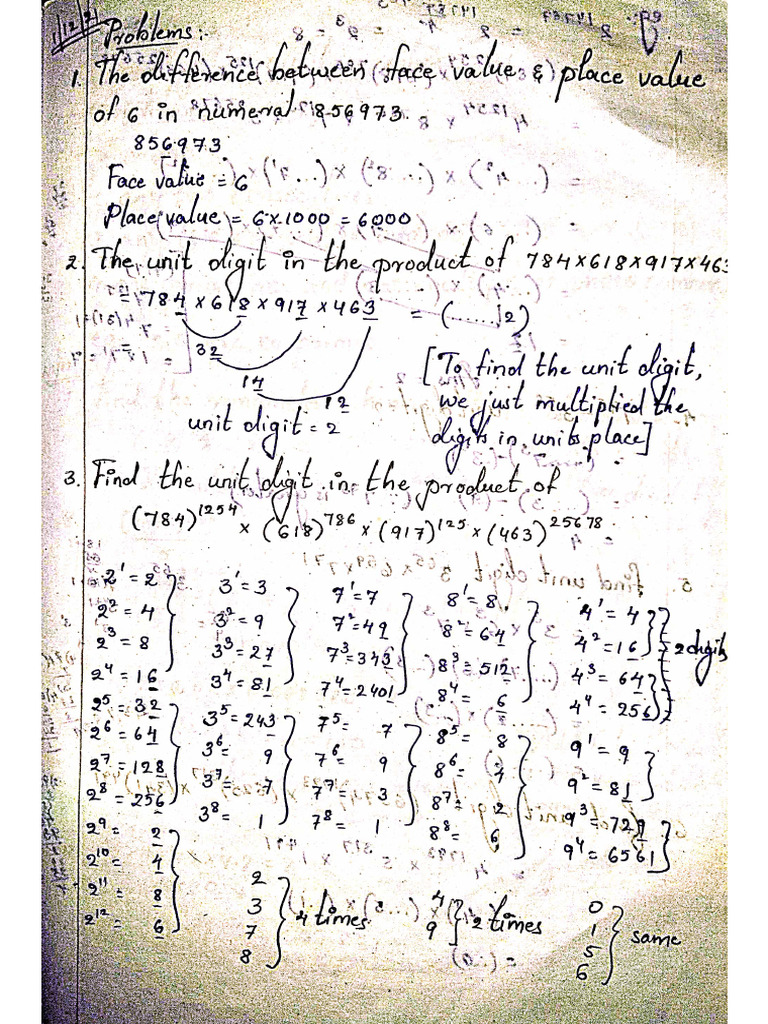 1/12/21
Problems:-
1. The difference between face value & place value
of 6 in numeral 856973.
856973
Face value = 6
Place value = 6×1000 = 6000
2. The unit digit in the product of 784×618×917×463
= 784 × 618 × 917 × 463 = (......12)
32
14
12
unit digit = 2
[To find the unit digit,
we just multiplied the
digits in units place]
3. Find the unit digit in the product of
(784)^1254 × (618)^786 × (917)^125 × (463)^25678
2^1 = 2 3^1 = 3 7^1 = 7 8^1 = 8 4^1 = 4
2^2 = 4 3^2 = 9 7^2 = 49 8^2 = 64 4^2 = 16 2 digits
2^3 = 8 3^3 = 27 7^3 = 343 8^3 = 512 4^3 = 64
2^4 = 16 3^4 = 81 7^4 = 2401 8^4 = 6 4^4 = 256
2^5 = 32 3^5 = 243 7^5 = 7 8^5 = 8 9^1 = 9
2^6 = 64 3^6 = 9 7^6 = 9 8^6 = 4 9^2 = 81
2^7 = 128 3^7 = 7 7^7 = 3 8^7 = 2 9^3 = 729
2^8 = 256 3^8 = 1 7^8 = 1 8^8 = 6 9^4 = 6561
2^9 = 2
2^10 = 4
2^11 = 8
2^12 = 6
2
3
7
8
4 times
4
9
2 times
0
1
5
6
same